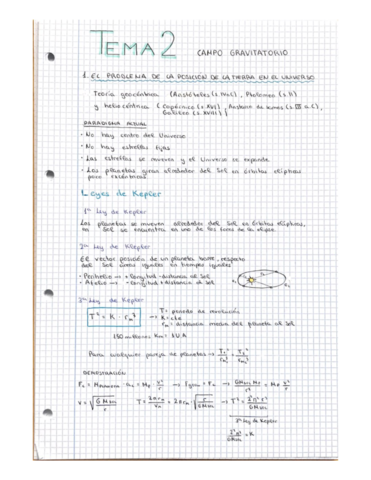 TEMA 2 CAMPO GRAVITATORIO
1. EL PROBLEMA DE LA POSICIÓN DE LA TIERRA EN EL UNIVERSO
Teoría geocéntrica (Aristóteles (s. IV a.C), Ptolomeo (s. II)
y heliocéntrica (Copérnico (s. XVI), Aristarco de Samos (s. III a.C),
Galileo (s. XVII)
PARADIGMA ACTUAL
· No hay centro del Universo
· No hay estrellas fijas
· Las estrellas se mueven y el Universo se expande
· Los planetas giran alrededor del Sol en órbitas elípticas
poco excéntricas.
Leyes de Kepler
1ª Ley de Kepler
Los planetas se mueven alrededor del Sol en órbitas elípticas,
el Sol se encuentra en uno de los focos de la elipse.
2ª Ley de Kepler
El vector posición de un planeta barre, respecto
del Sol áreas iguales en tiempos iguales
· Perihelio → + longitud - distancia al Sol
· Afelio → - longitud + distancia al Sol
3ª Ley de Kepler
T² = K · rm³
T = periodo de revolución
K = cte
rm = distancia media del planeta al Sol
150 millones Km = 1 U.A
Para cualquier pareja de planetas → T₁²/rm₁³ = T₂²/rm₂³
DEMOSTRACIÓN
Fc = Mplaneta · ac = Mp v²/r → Fgrav = Fc → GMsol Mp/r² = Mp v²/r
v = √(GMsol/r) T = 2πrm/v = 2πrm · √(r/GMsol) → T² = 4π² r³/GMsol
3ª Ley de Kepler
4π²/GMsol = K